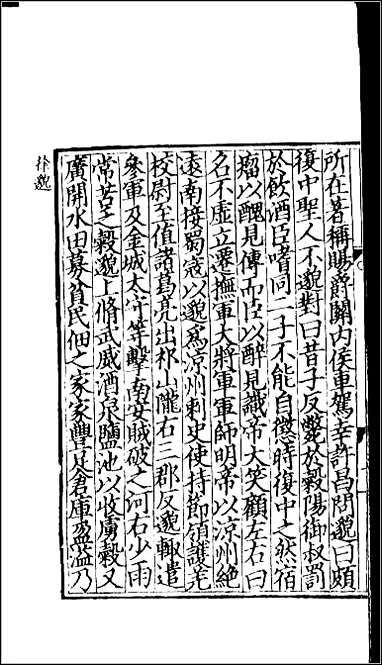 所在著稱賜爵關内侯車駕幸許昌問邈曰頗
復中聖人不邈對曰昔子反斃於穀陽御叔罰
於飲酒臣嗜同二子不能自懲時復中之然宿
瘤以醜見傳而臣以醉見識帝大笑顧左右曰
名不虛立遷撫軍大將軍軍師明帝以涼州絕
遠南接蜀寇以邈爲涼州刺史使持節領護羌
校尉至值諸葛亮出祁山隴右三郡反邈輙遣
參軍及金城太守等擊南安賊破之河右少雨
常苦乏穀邈上脩武威酒泉鹽池以收虜穀又
廣開水田募貧民佃之家家豐足倉庫盈溢乃
徐邈